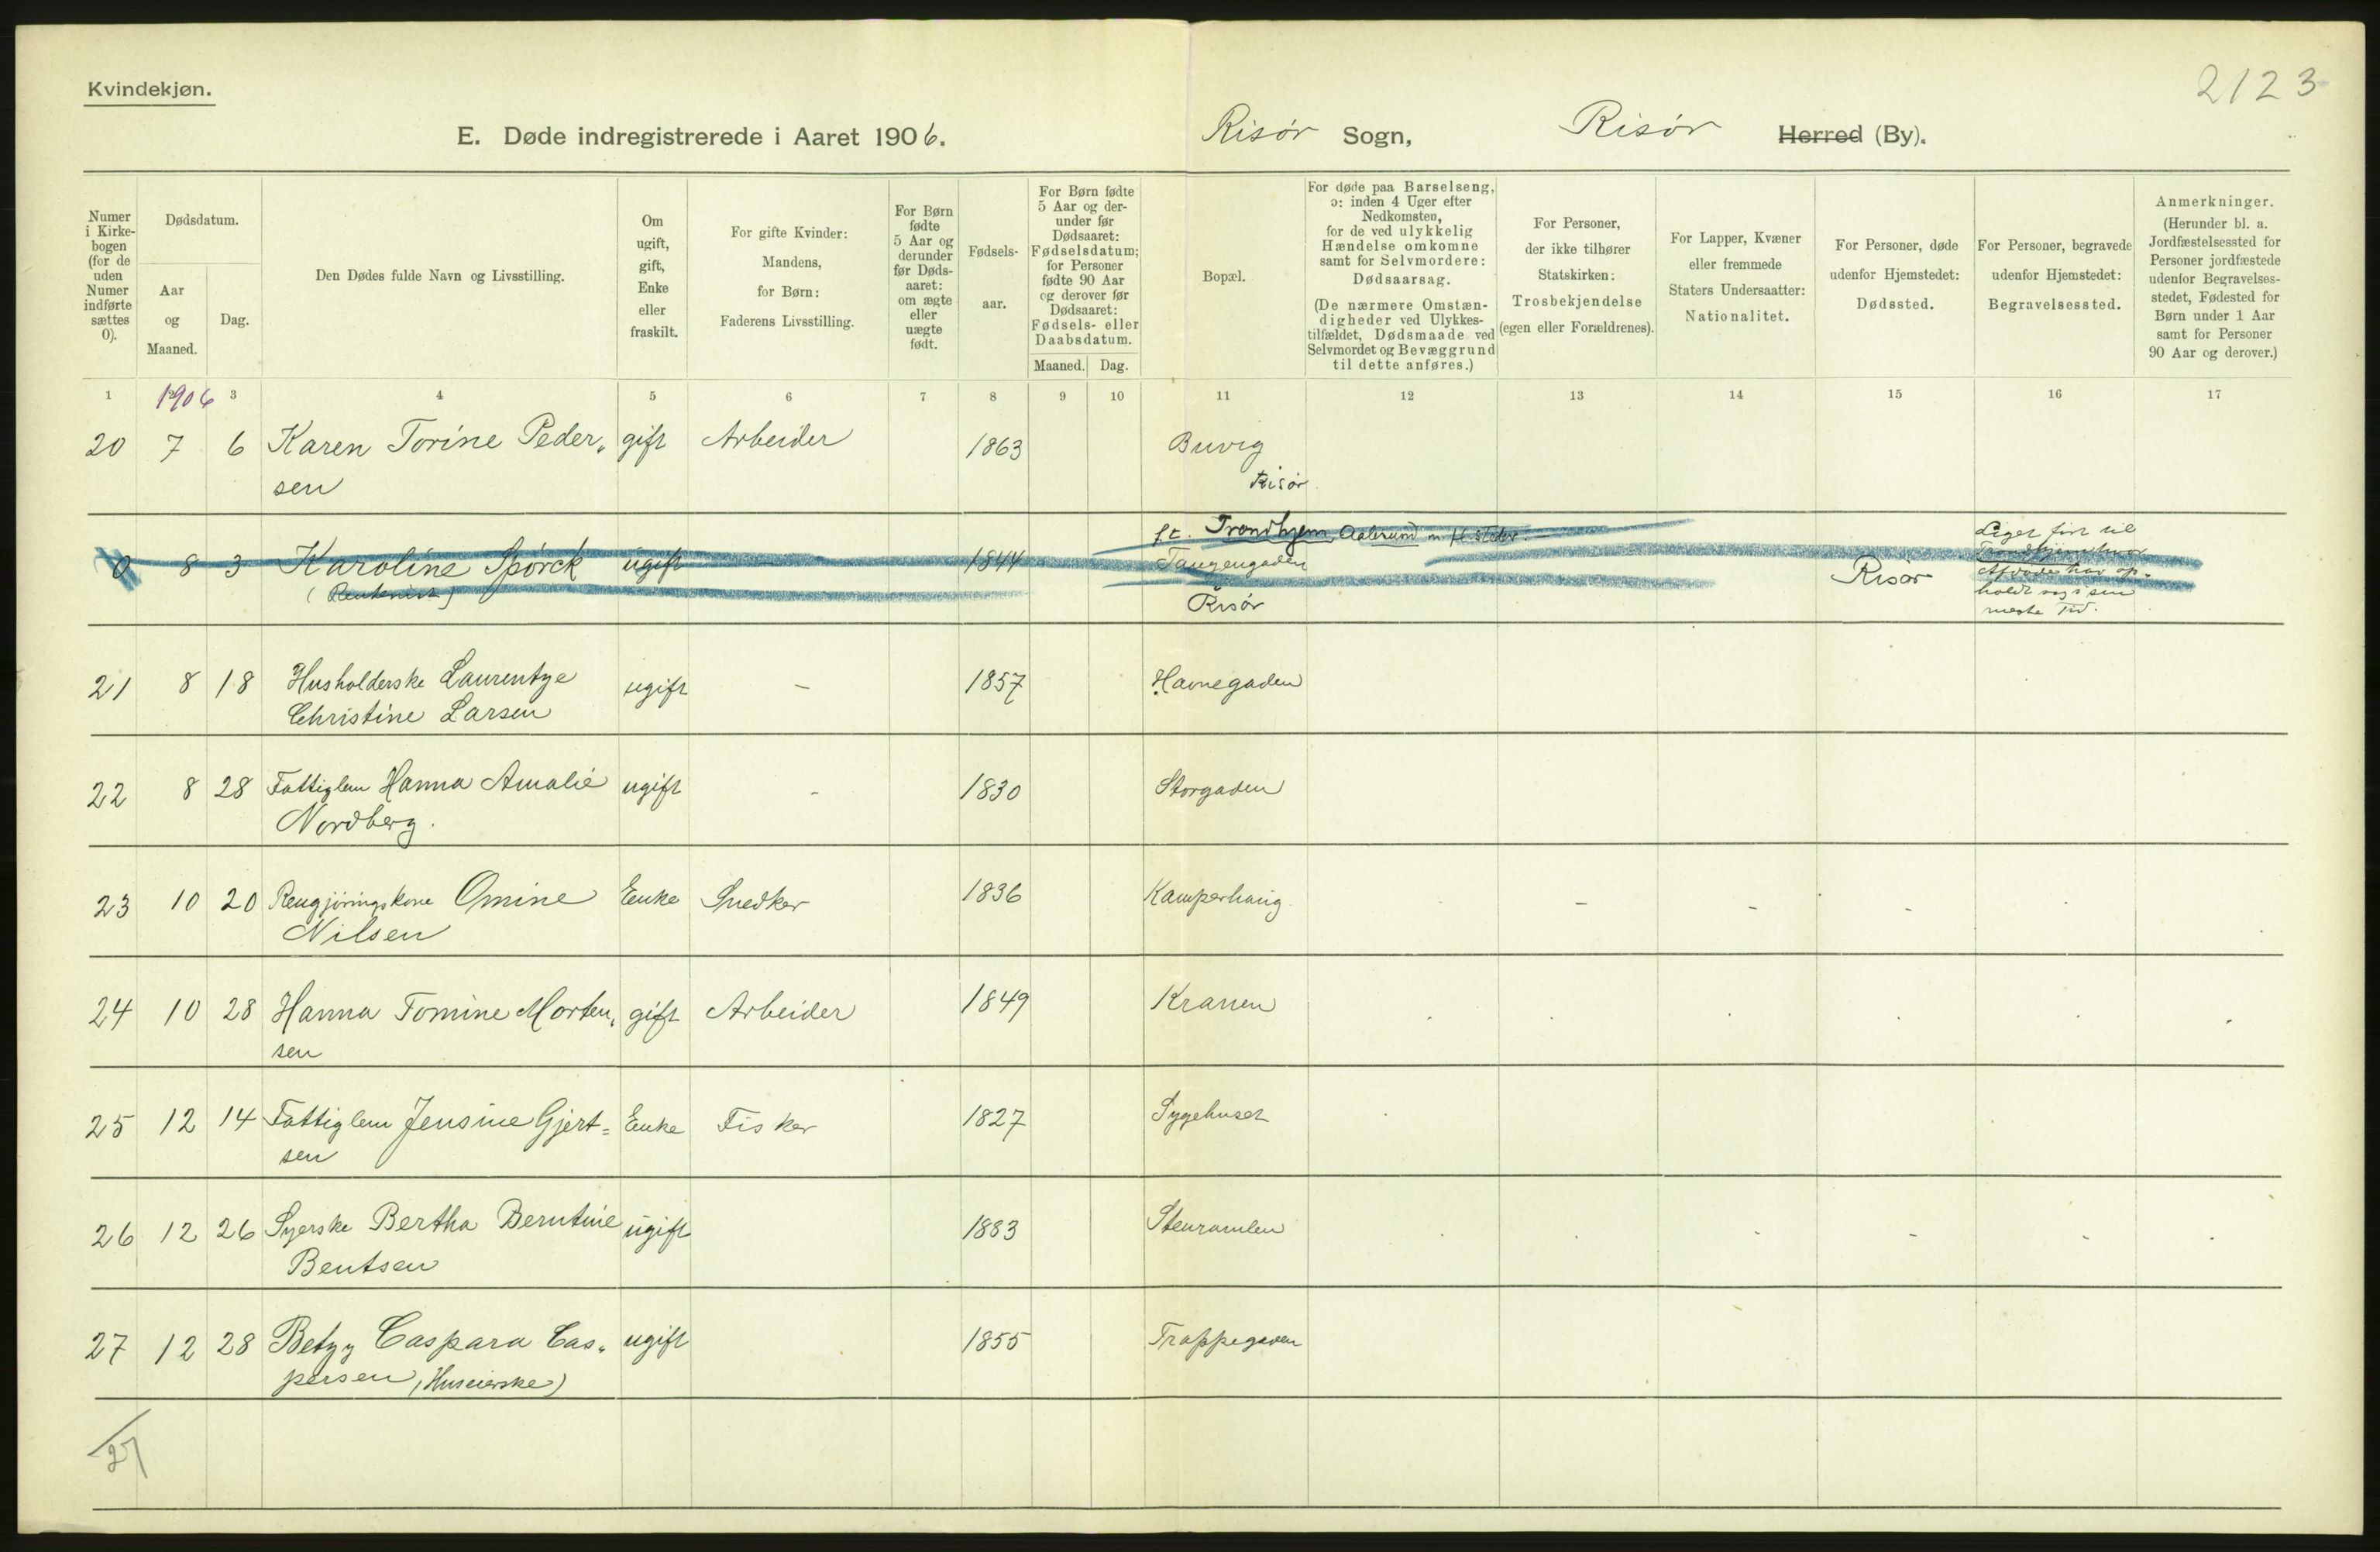 Kvindekjøn.
2123
E. Døde indregistrerede i Aaret 1906. Risør Sogn, Risør Herred (By).
Numer i Kirkebogen (for de uden Numer indførte sættes 0).
Dødsdatum.
Aar og Maaned.
Dag.
Den Dødes fulde Navn og Livsstilling.
Om ugift, gift, Enke eller fraskilt.
For gifte Kvinder: Mandens, for Børn: Faderens Livsstilling.
For Børn fødte 5 Aar og derunder før Dødsaaret: om ægte eller uægte født.
Fødselsaar.
For Børn fødte 5 Aar og derunder før Dødsaaret: Fødselsdatum; for Personer fødte 90 Aar og derover før Dødsaaret: Fødsels- eller Daabsdatum.
Maaned. Dag.
Bopæl.
For døde paa Barselseng, ɔ: inden 4 Uger efter Nedkomsten, for de ved ulykkelig Hændelse omkomne samt for Selvmordere: Dødsaarsag.
(De nærmere Omstændigheder ved Ulykkestilfældet, Dødsmaade ved Selvmordet og Bevæggrund til dette anføres.)
For Personer, der ikke tilhører Statskirken: Trosbekjendelse (egen eller Forældrenes).
For Lapper, Kvæner eller fremmede Staters Undersaatter: Nationalitet.
For Personer, døde udenfor Hjemstedet: Dødssted.
For Personer, begravede udenfor Hjemstedet: Begravelsessted.
Anmerkninger.
(Herunder bl. a. Jordfæstelsessted for Personer jordfæstede udenfor Begravelsesstedet, Fødested for Børn under 1 Aar samt for Personer 90 Aar og derover.)
1 1906 3 4 5 6 7 8 9 10 11 12 13 14 15 16 17
20 7 6 Karen Torine Peder„ gift Arbeider 1863 Buvig
sen Risør
ft. Trondhjem, Aalesund m fl steder. Liget ført til
0 8 3 Karoline Spørck ugift 1844 Tangengaden Risør Trondhjem hvor
(Rentenist) Risør Afdøde har op-
holdt sig i sin
meste Tid.
21 8 18 Husholderske Laurentze ugift – 1857 Havnegaden
Christine Larsen
22 8 28 Fattiglem Hanna Amalie ugift - 1830 Storgaden
Nordberg.
23 10 20 Rengjøringskone Omine Enke Snedker 1836 Kamperhaug
Nilsen
24 10 28 Hanna Tomine Morten, gift Arbeider 1849 Kranen
sen
25 12 14 Fattiglem Jensine Gjert= Enke Fisker 1827 Sygehuset
sen
26 12 26 Syerske Bertha Berntine ugift 1883 Stenramlen
Bentsen
27 12 28 Betzy Caspara Cas„ ugift 1855 Trappegaden
persen (Huseierske)
27